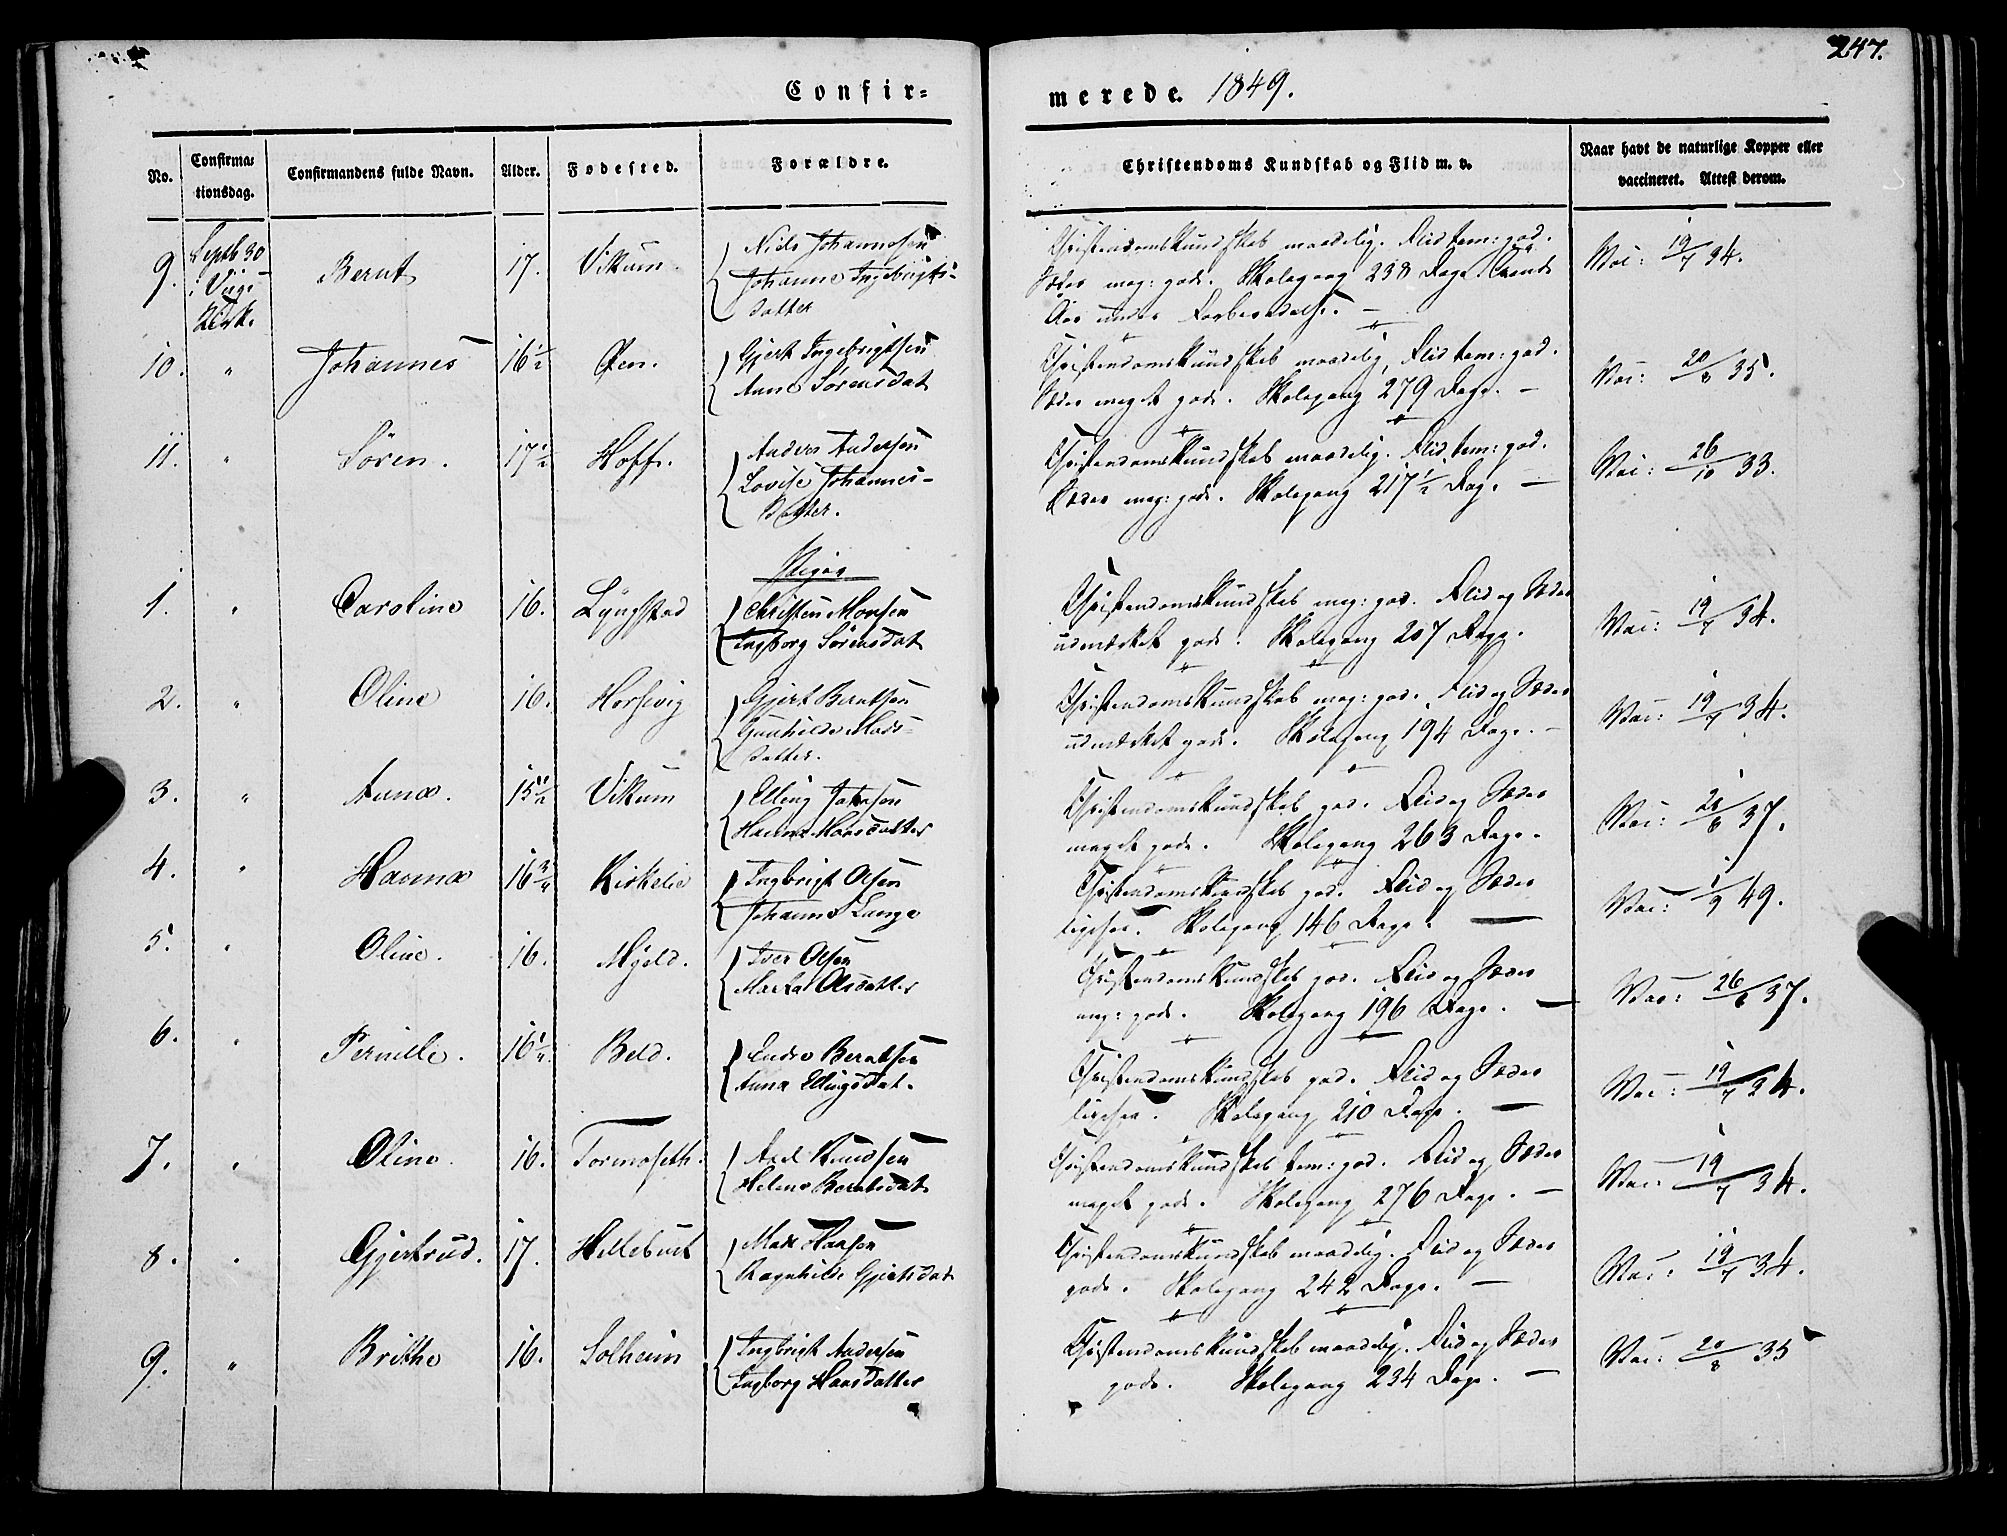 247.
Confir=
merede. 1849.
No.
Confirma=
tionsdag.
Confirmandens fulde Navn.
Alder.
Fødested.
Forældre.
Christendoms Kundskab og Flid m. v.
Naar havt de naturlige Kopper eller
vaccineret. Attest derom.
9. Septb 30 Bernt 17. Vikum. Niels Johannesen
i Viigs
Kirk.
Johanne Ingebrigts-
datter
Christendomskundskab maadelig. Flid tem: god.
Sæder meg: gode. Skolegang 238 Dage
Aar under Forberedelse. —
Vac: 19/7 34.
10. " Johannes 16½ Øen. Gjert Ingebrigtsen
Anne Sørensdat
Christendomskundskab maadelig, Flid tem: god.
Sæder meget gode. Skolegang 279 Dage. —
Vac: 20/8 35.
11. " Sören. 17½ Hoff. Anders Andersen
Lovise Johannes-
datter.
Christendomskundskab maadelig. Flid tem: god.
Sæder meg: gode. Skolegang 217½ Dag. —
Vac: 26/10 33.
Piger
1. " Caroline 16. Lyngstad Christen Monsen
Ingborg Sörensdat
Christendomskundskab meg: god. Flid og Sæder
udmærket gode. Skolegang 207 Dage.
Vac: 19/7 34.
2. " Oline 16. Horsevig Gjert Berntsen
Gunhilde Mads-
datter.
Christendomskundskab meg: god. Flid og Sæder
udmærket gode. Skolegang 194 Dage. —
Vac: 19/7 34.
3. " Anna. 15½ Vikum Elling Johnsen
Hanna Hansdatter
Christendomskundskab god. Flid og Sæder
meget gode. Skolegang 263 Dage.
Vac: 37.
4. " Hanna 16¾ Kirkelie Ingbrigt Olsen
Johanne Lange
Christendomskundskab god. Flid og Sæder
ligesaa. Skolegang 146 Dage. —
Vac: 1/9 49.
5. " Oline. 16. Myeld. Iver Olsen
Martha Olsdatter
Christendomskundskab god. Flid og Sæder
meg: gode. Skolegang 196 Dage. —
Vac: 26/6 37.
6. " Pernille. Beld. Endre Berntsen
Anna Ellingsdat.
Christendomskundskab god. Flid og Sæder
ligesaa. Skolegang 210 Dage. —
Vac: 19/7 34.
7. " Oline 16. Tormoseth. Axel Knudsen
Helene Berntsdat
Christendomskundskab tem: god. Flid og Sæder
meget gode. Skolegang 276 Dage. —
Vac: 19/7 34.
8. " Gjertrud. 17. Hellebust Mads Hansen
Ragnhilde Gjertsdat
Christendomskundskab maadelig. Flid og Sæder
gode. Skolegang 242 Dage. —
Vac: 19/7 34.
9. " Brithe 16. Solheim Ingbrigt Andersen
Ingborg Hansdatter
Christendomskundskab maadelig. Flid og Sæder
gode. Skolegang 234 Dage. —
Vac: 20/8 35